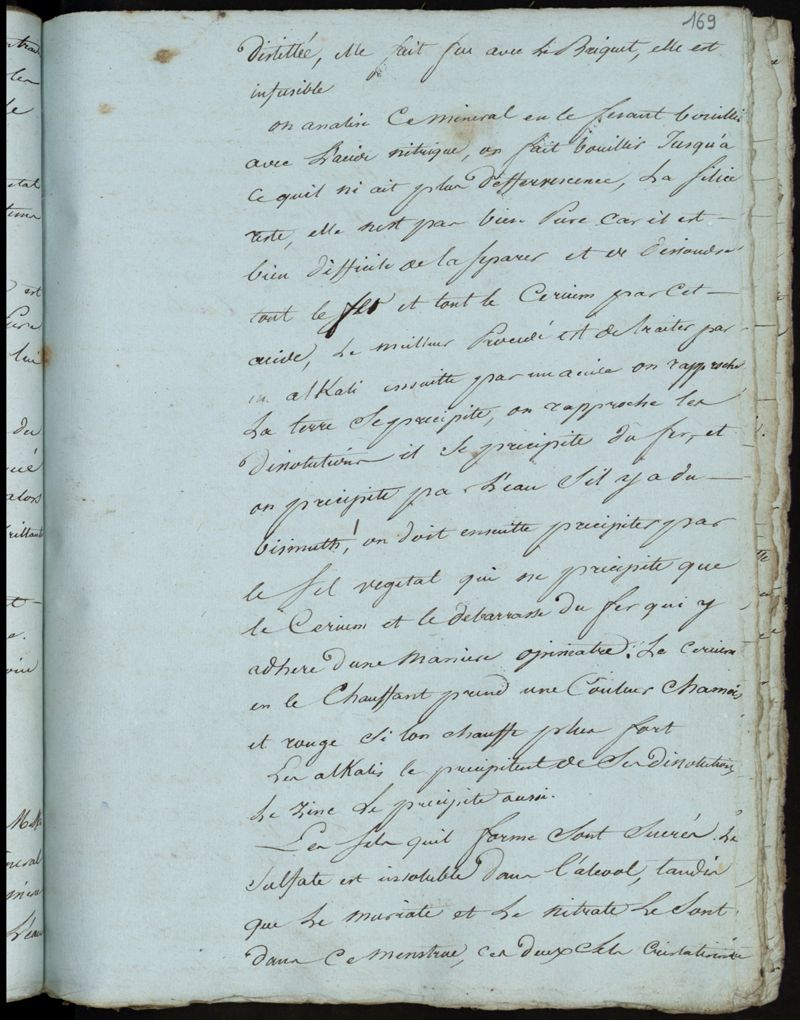 169
Distillée, elle fait feu avec Le Briquet, elle est
infusible
on analise Ce mineral en le fesant bouillir
avec L'acide nitrique, on fait bouillir Jusqu'a
ce quil ni ait plus d'effervescence, La silice
reste, elle nest pas bien Pure car il est
bien difficile de la separer et de dissoudre
tout le fer et tout le Cerium par cet
acide, Le meilleur Procedé est de traiter par
un alKali ensuitte par un acide on rapproche
La terre Se precipite, on rapproche les
Disolutions il se precipite du fer, et
on precipite par L'eau S'il y a du
bismuth, on doit ensuitte precipiter par
le sel vegetal qui ne precipite que
le Cerium et le debarrasse du fer qui y
adhere d'une Maniere opiniatre. Le cerium
en le Chauffant prend une Couleur Chamois
et rouge Si lon chauffe plus fort
Les alKalis le precipitent de Ses disolutions
Le Zinc Le precipite aussi.
Les sels quil forme Sont Sucrés. Le
Sulfate est insoluble dans l'alcool, tandis
que Le muriate et Le nitrate Le Sont
dans Ce Menstrue, ces deux Sels